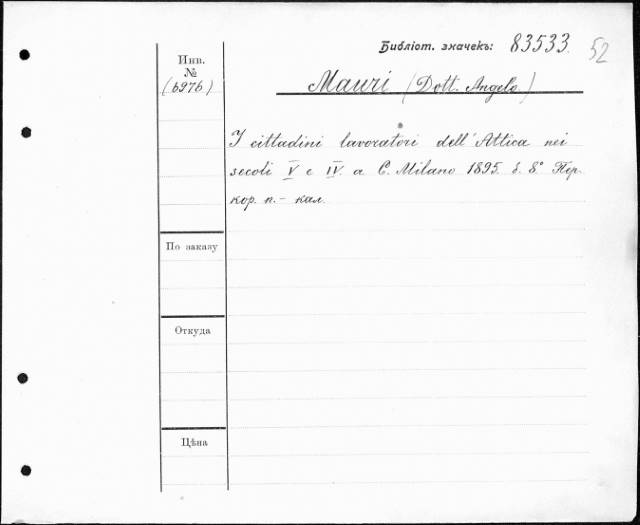 Библіот. значекъ: 83533. 52
Инв.
№
(6976)
Mauri (Dott. Angelo)
I cittadini lavoratori dell'Attica nei
secoli V e IV. a C. Milano 1895. б. 8° Пер.
кор. п. - кал.
По заказу
Откуда
Цѣна